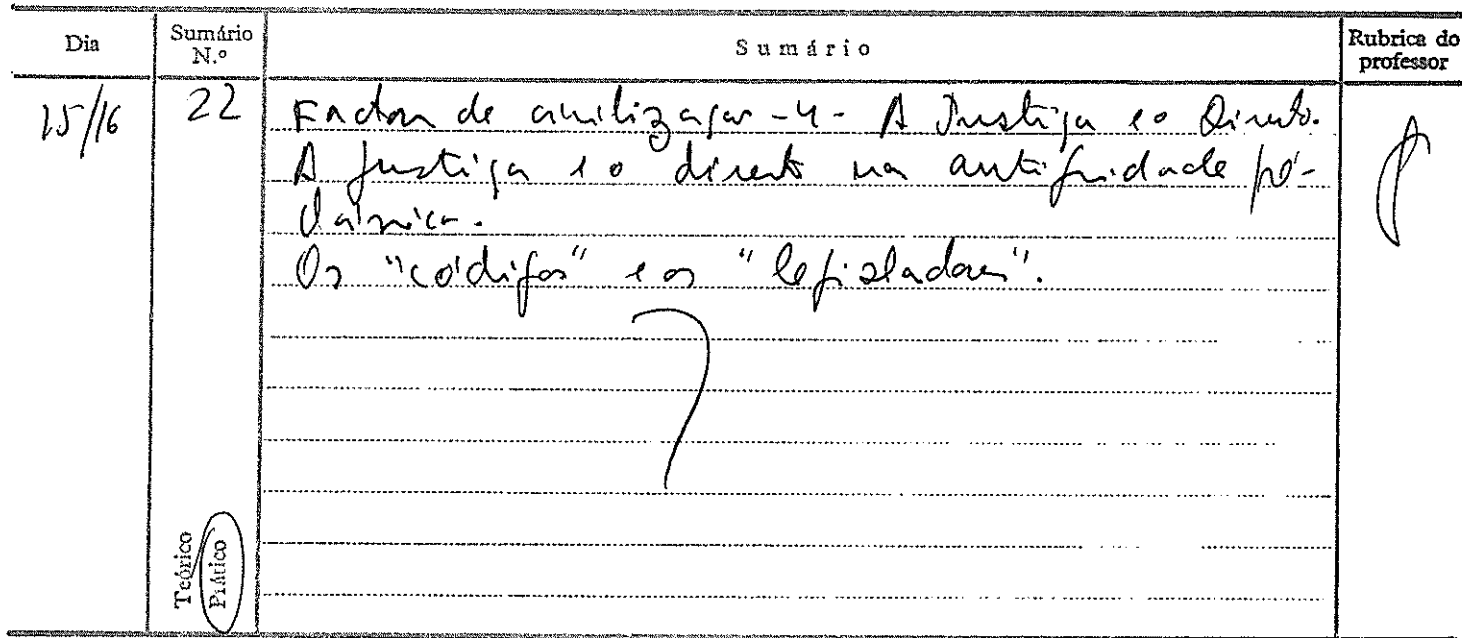 Dia
Sumário N.º
Sumário
Rubrica do professor
15/16
22
Factores de civilização - 4 - A Justiça e o Direito.
A justiça e o direito na antiguidade pré-
clássica.
Os "códigos" e os "legisladores".
Teórico
Prático